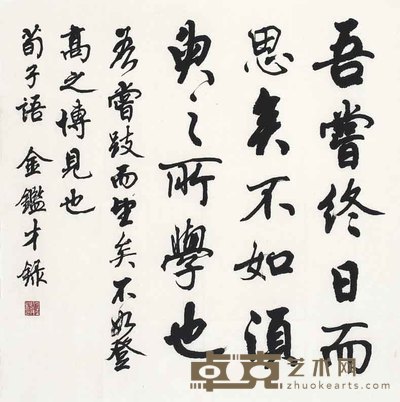 吾嘗終日而
思矣不如須
臾之所學也
吾嘗跂而望矣不如登
高之博見也
荀子語 金鑑才錄
卓克艺术网
zhuokearts.com